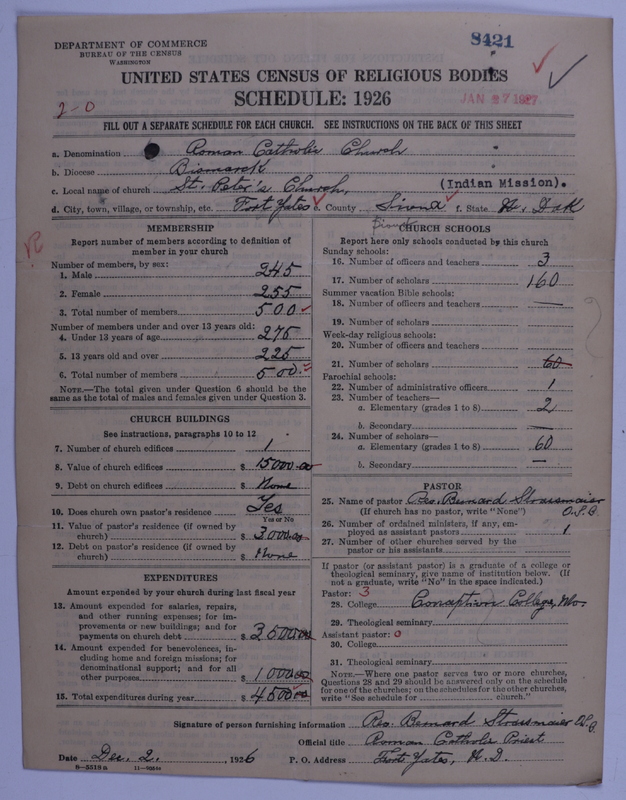 DEPARTMENT OF COMMERCE
BUREAU OF THE CENSUS
WASHINGTON
8421
UNITED STATES CENSUS OF RELIGIOUS BODIES
SCHEDULE: 1926
2-0
JAN 27 1927
FILL OUT A SEPARATE SCHEDULE FOR EACH CHURCH. SEE INSTRUCTIONS ON THE BACK OF THIS SHEET
a. Denomination Roman Catholic Church
b. Diocese Bismarck
c. Local name of church St. Peter's Church, (Indian Mission).
d. City, town, village, or township, etc. Fort Yates e. County Sioux f. State N. Dak
MEMBERSHIP
Report number of members according to definition of
member in your church
Number of members, by sex:
1. Male 245
2. Female 255
3. Total number of members 500
Number of members under and over 13 years old:
4. Under 13 years of age 275
5. 13 years old and over 225
6. Total number of members 500
NOTE.—The total given under Question 6 should be
the same as the total of males and females given under Question 3.
CHURCH BUILDINGS
See instructions, paragraphs 10 to 12
7. Number of church edifices 1
8. Value of church edifices $ 15000.00
9. Debt on church edifices $ None
10. Does church own pastor's residence Yes
Yes or No
11. Value of pastor's residence (if owned by
church) $ 3000.00
12. Debt on pastor's residence (if owned by
church) $ None
EXPENDITURES
Amount expended by your church during last fiscal year
13. Amount expended for salaries, repairs,
and other running expenses; for im-
provements or new buildings; and for
payments on church debt $ 3500.00
14. Amount expended for benevolences, in-
cluding home and foreign missions; for
denominational support; and for all
other purposes $ 1000.00
15. Total expenditures during year $ 4500.00
CHURCH SCHOOLS
Report here only schools conducted by this church
Sunday schools:
16. Number of officers and teachers 3
17. Number of scholars 160
Summer vacation Bible schools:
18. Number of officers and teachers —
19. Number of scholars —
Week-day religious schools:
20. Number of officers and teachers
21. Number of scholars 60
Parochial schools:
22. Number of administrative officers 1
23. Number of teachers—
a. Elementary (grades 1 to 8) 2
b. Secondary —
24. Number of scholars—
a. Elementary (grades 1 to 8) 60
b. Secondary —
PASTOR
25. Name of pastor Rev. Bernard Strassmaier
(If church has no pastor, write "None") O.S.B.
26. Number of ordained ministers, if any, em-
ployed as assistant pastors 1
27. Number of other churches served by the
pastor or his assistants
If pastor (or assistant pastor) is a graduate of a college or
theological seminary, give name of institution below. (If
not a graduate, write "No" in the space indicated.)
Pastor: 3
28. College Conception College, Mo.
29. Theological seminary
Assistant pastor: 0
30. College
31. Theological seminary
NOTE.—Where one pastor serves two or more churches,
Questions 28 and 29 should be answered only on the schedule
for one of the churches; on the schedules for the other churches,
write "See schedule for church."
Signature of person furnishing information Rev. Bernard Strassmaier O.S.B.
Official title Roman Catholic Priest
Date Dec. 2, 1926 P. O. Address Fort Yates, N.D.